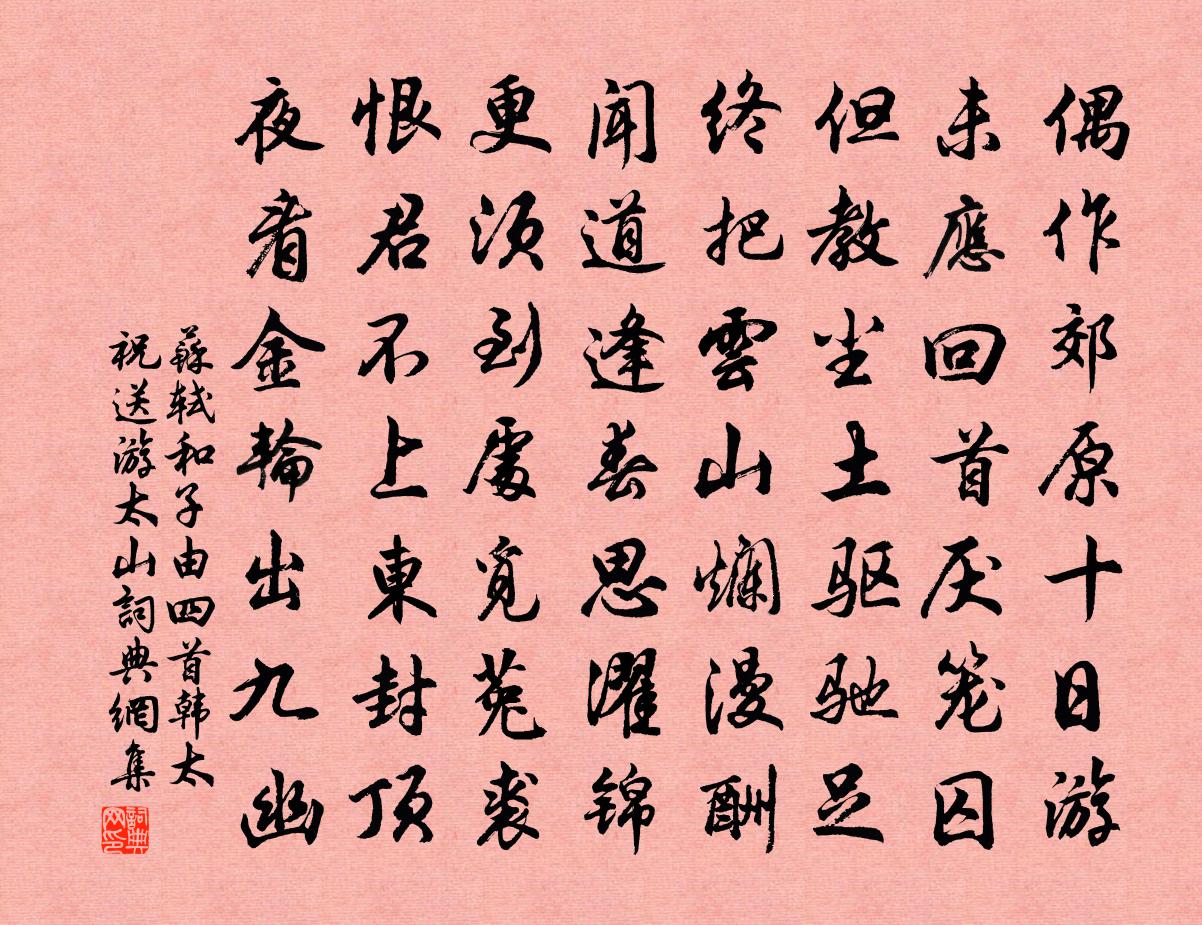 偶作郊原十日游
未應回首厌笼囚
但教尘土驱驰足
终把雲山爛漫酬
闻道逢春思濯锦
更须到處觅菟裘
恨君不上東封顶
夜看金輪出九幽
蘇轼和子由四首韩太
祝送游太山詞典網集
詞典网印